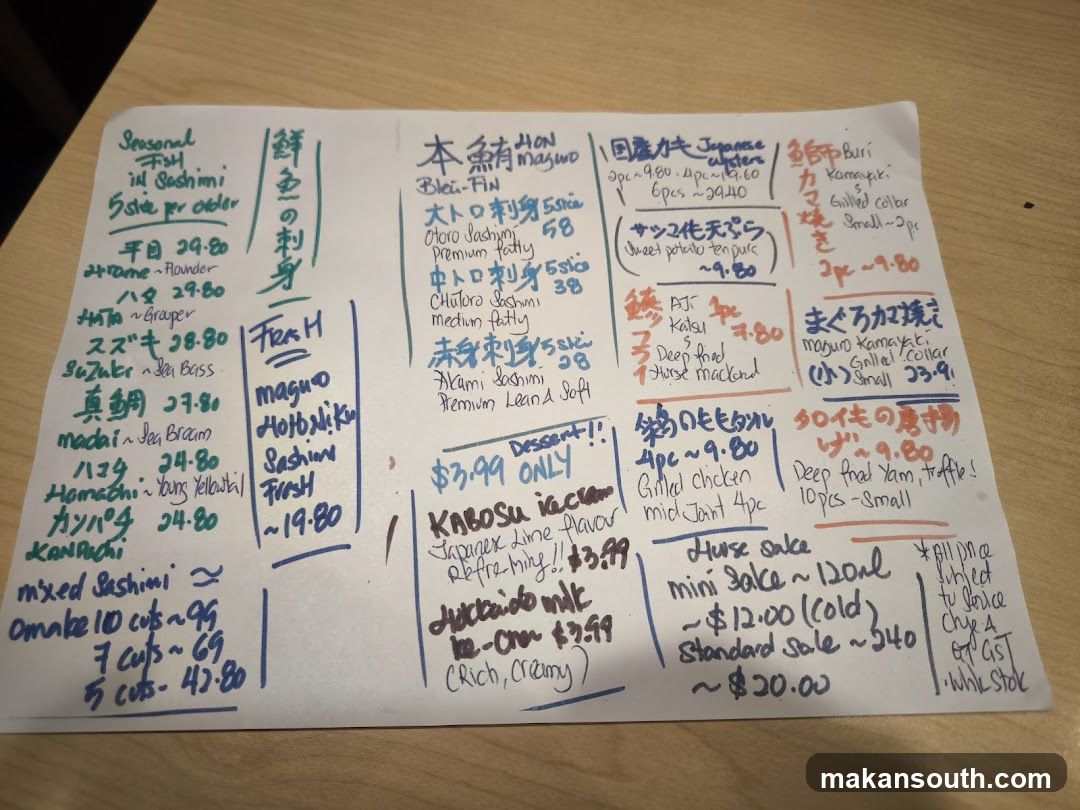 Seasonal
Fish
in Sashimi
5 slice per order
鮮魚の刺身
平目 29.80
Hirame ~ Flounder
ハタ 29.80
HATA ~ Grouper
スズキ 28.80
Suzuki ~ Sea Bass
真鯛 27.80
madai ~ Sea Bream
ハマチ 24.80
Hamachi ~ Young Yellowtail
カンパチ 24.80
KANPachi
mixed Sashimi
omakase 10 cuts ~ 99
7 cuts ~ 69
5 cuts - 42.80
FresH
maguro
HOHONiKU
Sashimi
FresH
~19.80
本鮪 HON maguro
Bleu-FiN
大トロ刺身 5slice 58
Otoro Sashimi
Premium fatty
中トロ刺身 5slice 38
CHUToro Sashimi
medium fatty
赤身刺身 5slice 28
Akami Sashimi
Premium Lean & Soft
Dessert!!
$3.99 ONLY
KABOSU ice cream
Japanese Lime flavour
Refreshing!! $3.99
Hokkaido milk
ice-cream $3.99
(Rich, Creamy)
国産カキ Japanese oysters
2pc ~ 9.80. 4pc ~ 19.60
6pcs ~ 29.40
(サツマイモ天ぷら
Sweet potato tenpura
~ 9.80)
鯵フライ
AJi
Katsu
1pc
7.80
Deep fried
Horse mackerel
4pc ~ 9.80
Grilled chicken
mid Joint 4pc
House sake
mini Sake ~ 120ml
~ $12.00 (cold)
standard sake ~ 240
~ $20.00
鰤カマ焼き
Buri
Kamayaki
Grilled collar
Small ~ 2pc
2pc ~ 9.80
まぐろカマ焼き
maguro Kamayaki
Grilled collar
(小) Small
タロイモの唐揚げ ~ 9.80
Deep fried Yam, truffle!
10pcs - Small
* All price
Subject
to Service
GST
. while Stock
makansouth.com